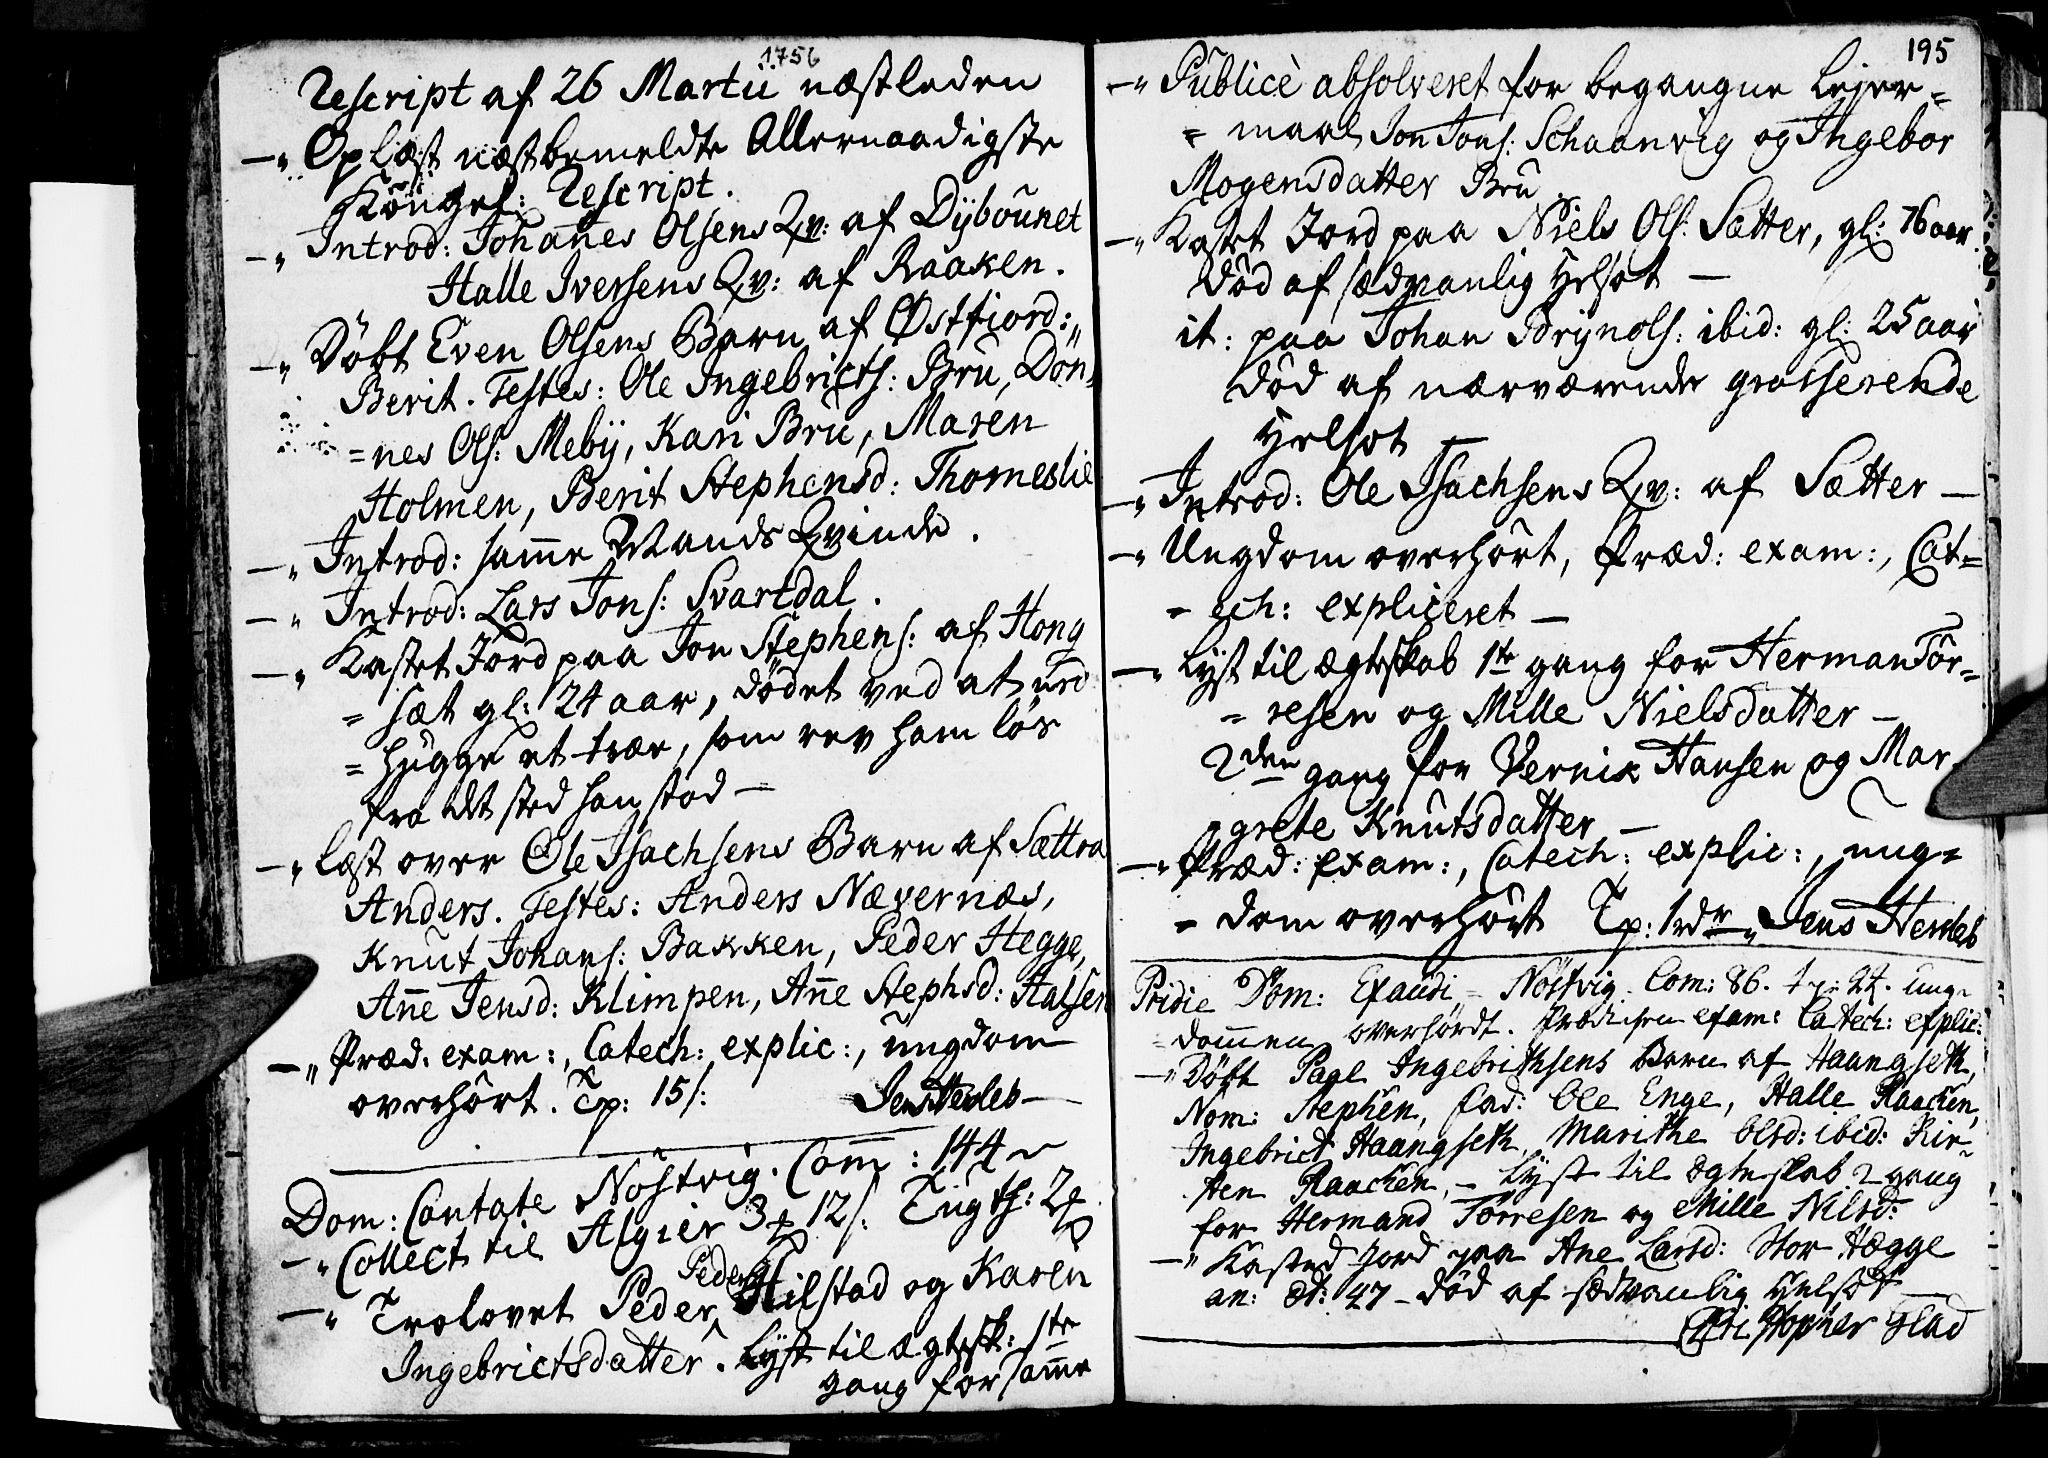 1756
Rescript af 26 Martii næstleden
—„ Oplæst næstbemeldte Allernaadigste
Kongel: Rescript.
—„ Introd: Johanes Olsens Qv: af Dÿbounet
Halle Iversens Qv: af Raaken.
—„ Döbt Even Olsens Barn af Østfiord:
Berit. Testes: Ole Ingebricts: Bru, Dön
=nes Ols: Mebÿ, Kari Bru, Maren
Holmen, Berit Stephensd: Thomeslie
—„ Introd: samme Mands Qvinde.
—„ Introd: Lars Jons: Svartdal.
—„ Kastet Jord paa Jon Stephens: af Hong
= sæt gl: 24 aar, dödet ved at ud
= hugge et træe, som rev ham lös
fra det sted han stod —
—„ læst over Ole Isachsens Barn af Sættra
Anders. Testes: Anders Nævernæs,
Knut Johans: Bakken, Peder Hegge,
Anne Jensd: Klimpen, Anne Stephsd: Halsen
—„ Præd: exam:, Catech: explic:, ungdom
overhört. Tp: 15 s: Jens Herdeb —
Dom: Cantate Nöstvig. Com: 144
—„ Collect til Algier 3 12 s: Tugth: 2
—„ Trolovet Peder Peders: Hilstad og Karen
Ingebrictsdatter. Lyst til ægtesk: 1te
gang for samme
195
—„ Publicè absolveret for begangne Leyer=
= maal Jon Jons: Schaanvig og Ingebor
Mogensdatter Bru.
—„ Kastet Jord paa Niels Ols: Sætter, gl: 76 aar.
död af sædvanlig Helsot —
it: paa Johan Brÿnols: ibid: gl: 25 aar
död af nærværende grasserende
Helsot
—„ Introd: Ole Isachsens Qv: af Sætter —
—„ Ungdom overhört, Præd: exam:, Cat=
= ech: expliceret —
—„ Lyst til ægteskab 1te gang for Herman Tör=
= resen og Mille Nielsdatter —
2den gang for Vernik Hansen og Mar
= grete Knutsdatter —
—„ Præd: exam:, Catech: explic:, ung=
= dom overhört Tp: 1 rdr Jens Herdeb
Pridie Dom: Exaudi = Nöstvig. Com: 86. tp: 24. ung=
= dommen overhördt. Prædiken exam: Catech: explic:
—„ Döbt Paal Ingebrithsens Barn af Haangseth,
Nom: Stephen, fad: Ole Enge, Halle Raachen,
Ingebrict Haangseth, Marithe Olsd: ibid: Kir=
sten Raachen, — Lyst til ægteskab 2 gang
for Hermand Törresen og Mille Nilsd:
—„ Kasted Jord paa Ane Larsd: Stor Hægge
an: æt: 47 — död af sædvanlig Helsot —
Höpner Glad